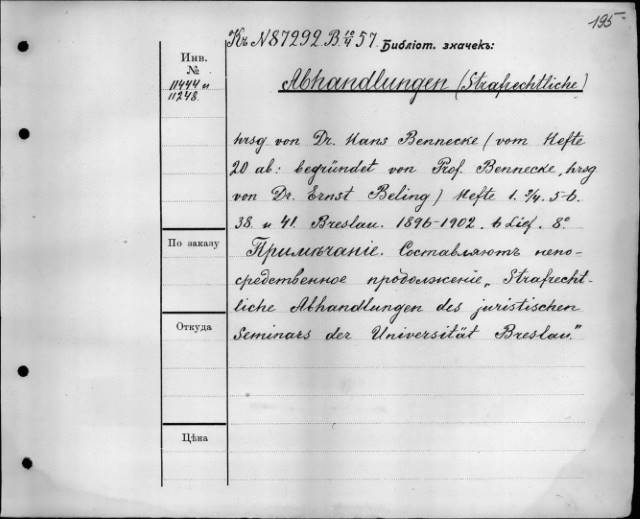 195
Къ N 87292. B. 10/4 57. Библіот. значекъ:
Инв.
№
11444 и
11248.
Abhandlungen (Strafrechtliche)
hrsg von Dr. Hans Bennecke (vom Hefte
20 ab: begründet von Prof. Bennecke, hrsg
von Dr. Ernst Beling) Hefte 1. 3/4. 5-6.
38. и 41. Breslau. 1896-1902. 6 Lief. 8°
По заказу
Примѣчаніе. Составляютъ непо-
средственное продолженіе „Strafrecht-
liche Abhandlungen des juristischen
Откуда
Seminars der Universität Breslau."
Цѣна